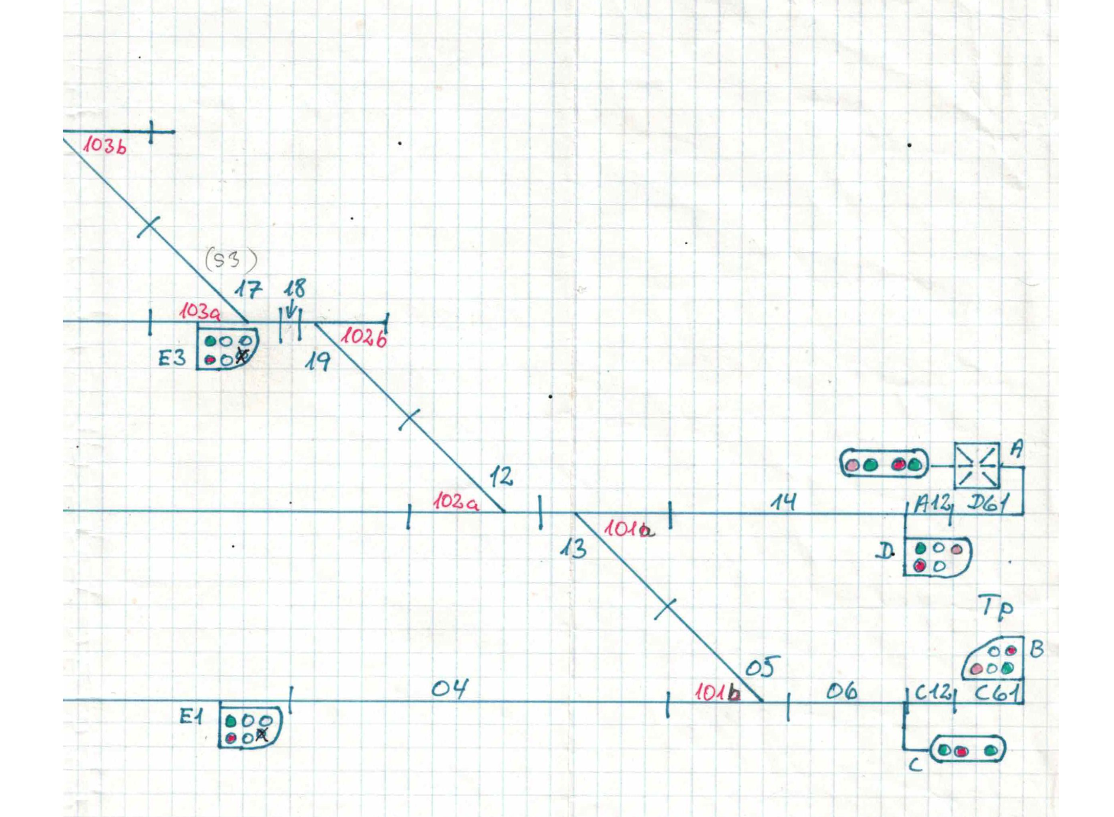 103b
(S3)
17 18
103a
102b
E3
19
12
A
102a
14
A12
D61
101a
13
D.
Tp
05
B
04
101b
06
C12
C61
E1
C